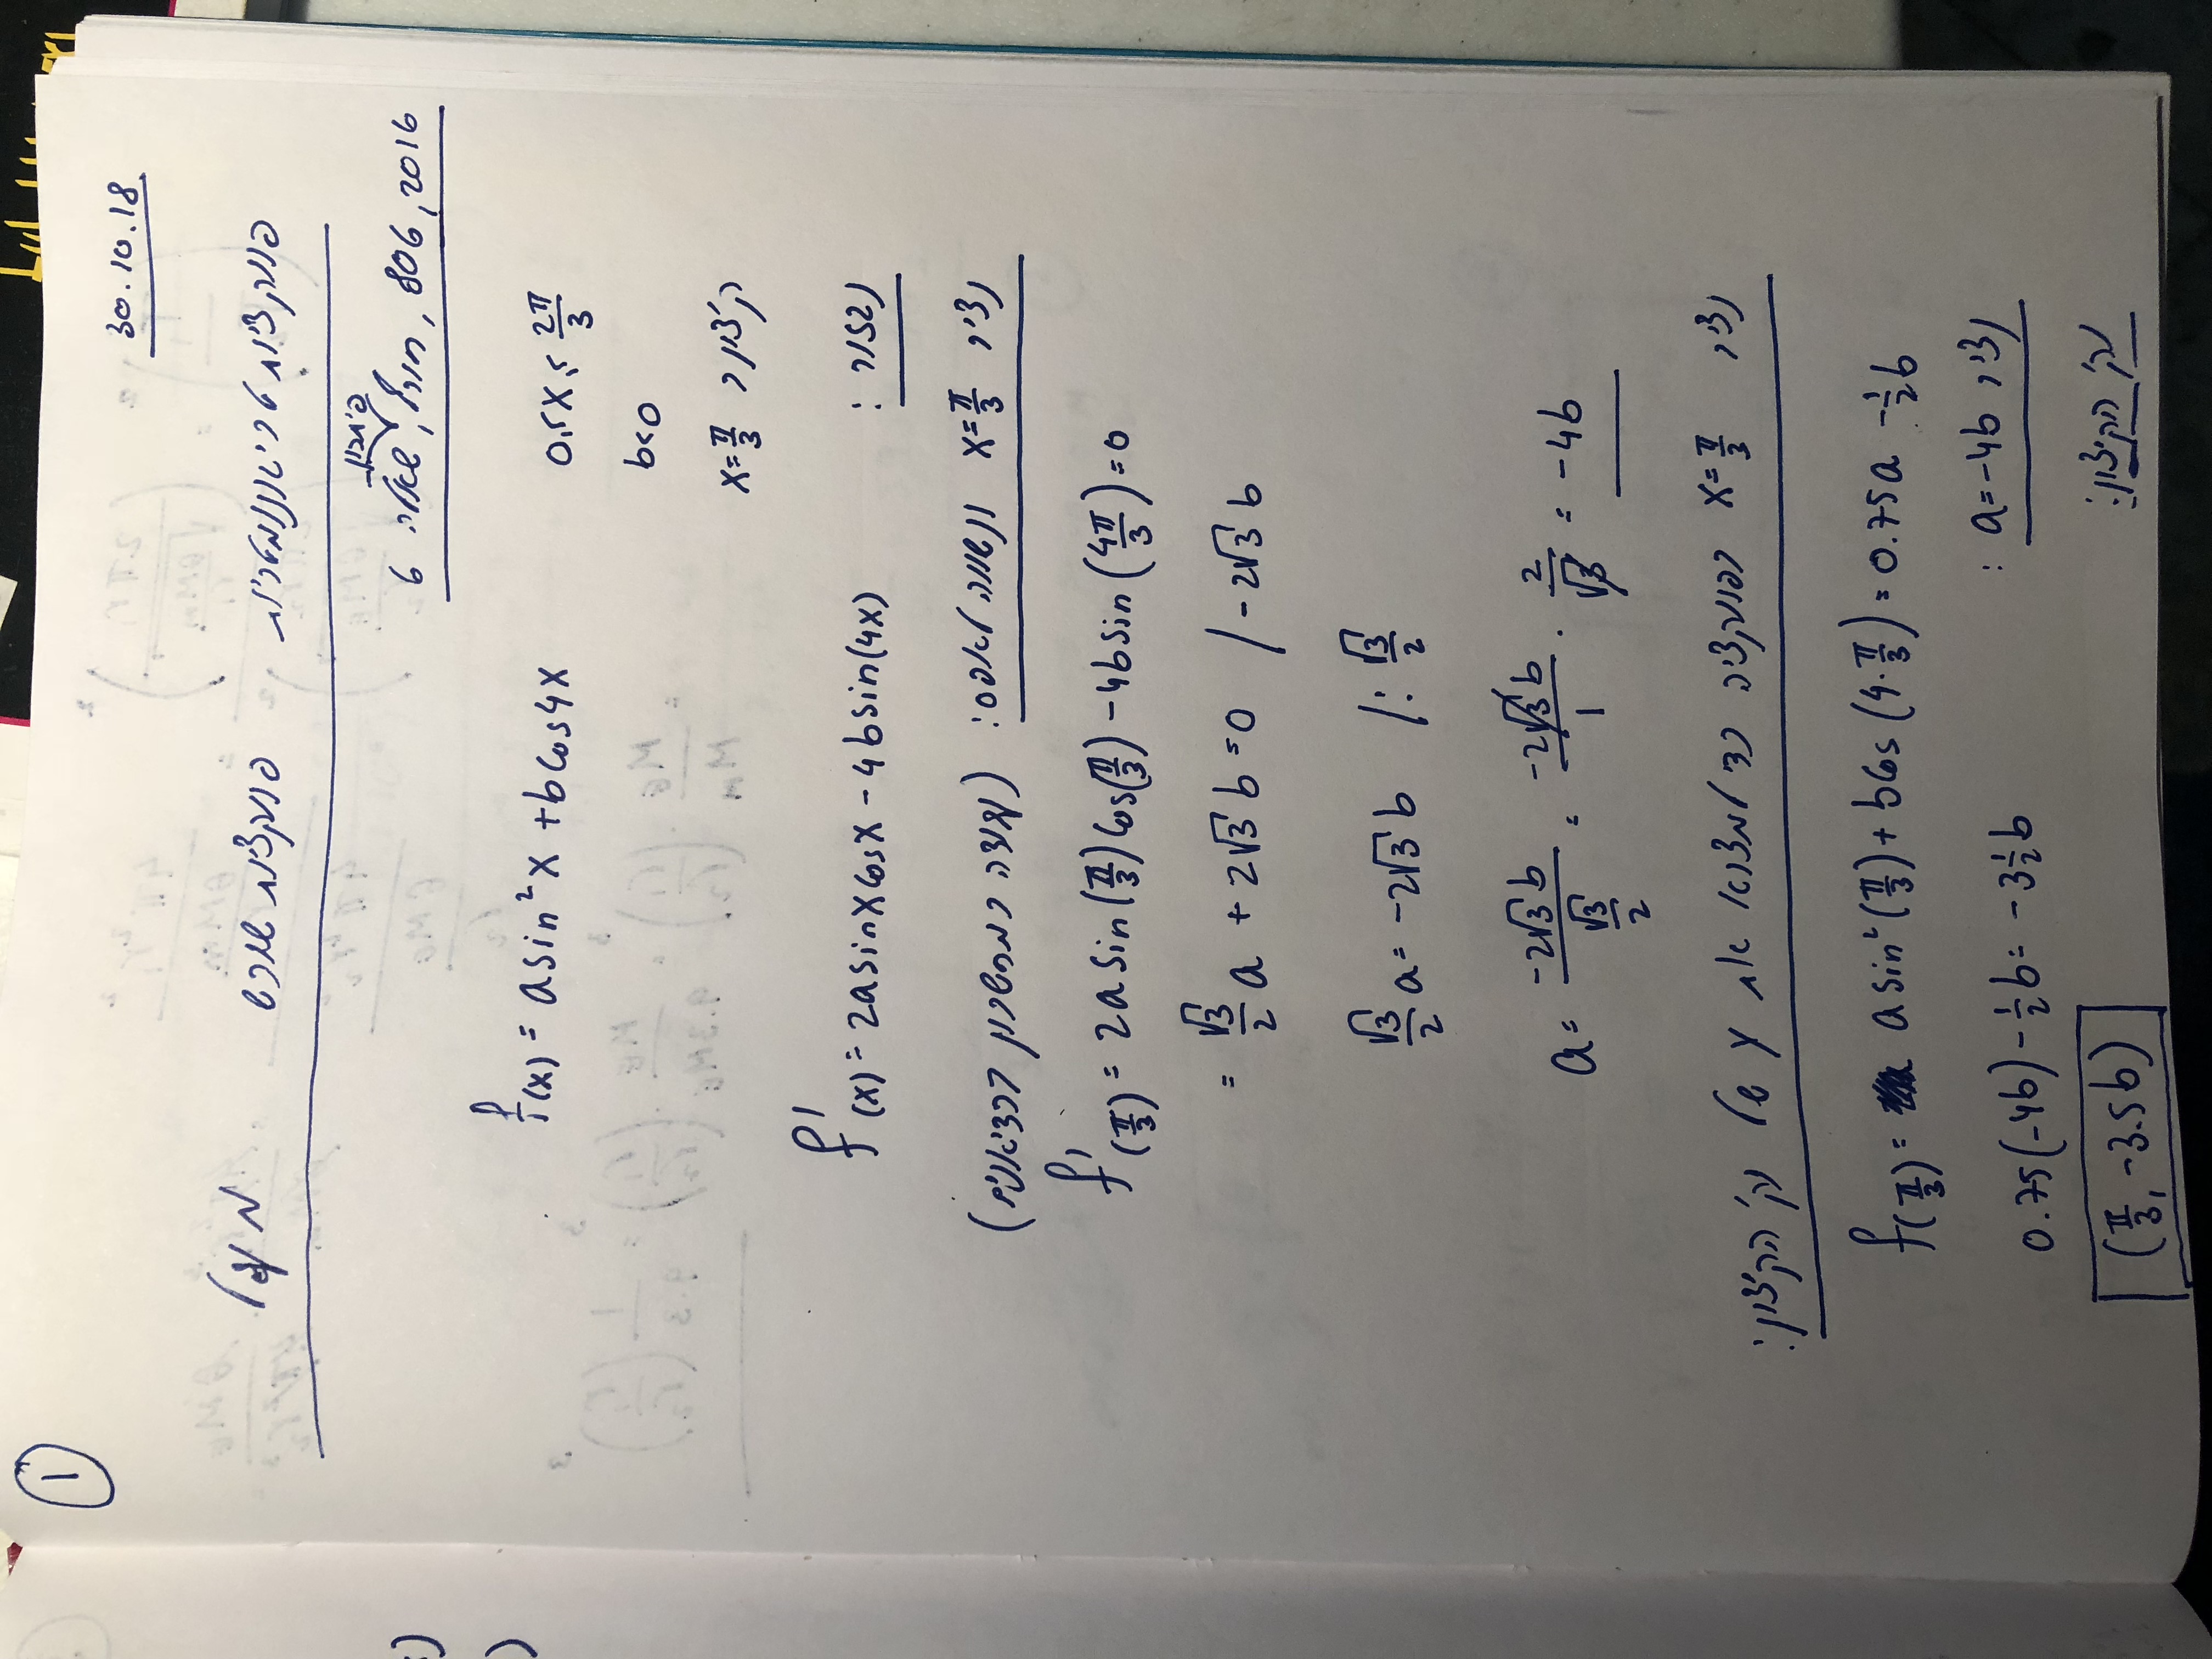 1
30.10.18
פונקציות טריגונומטריות פונקציות שורש
2016, 806, חורף, שאלה 6
פיתרון
f(x) = a sin²x + b cos4x 0≤x≤2π/3
b<0
קיצון ב x=π/3
נגזור:
f'(x) = 2a sinx cosx - 4b sin(4x)
נציב x=π/3 ונשווה לאפס: (נעבוד במחשבון ברדיאנים)
f'(π/3) = 2a sin(π/3) cos(π/3) - 4b sin(4π/3) = 0
= √3/2 a + 2√3 b = 0 / -2√3 b
√3/2 a = -2√3 b /: √3/2
a = -2√3 b / (√3/2) = -2√3 b / 1 · 2/√3 = -4b
נציב x=π/3 בפונקציה כדי למצוא את y של נק' הקיצון:
f(π/3) = a sin²(π/3) + b cos(4·π/3) = 0.75a - 1/2 b
נציב a=-4b :
0.75(-4b) - 1/2 b = -3 1/2 b
נק' הקיצון:
(π/3, -3.5b)